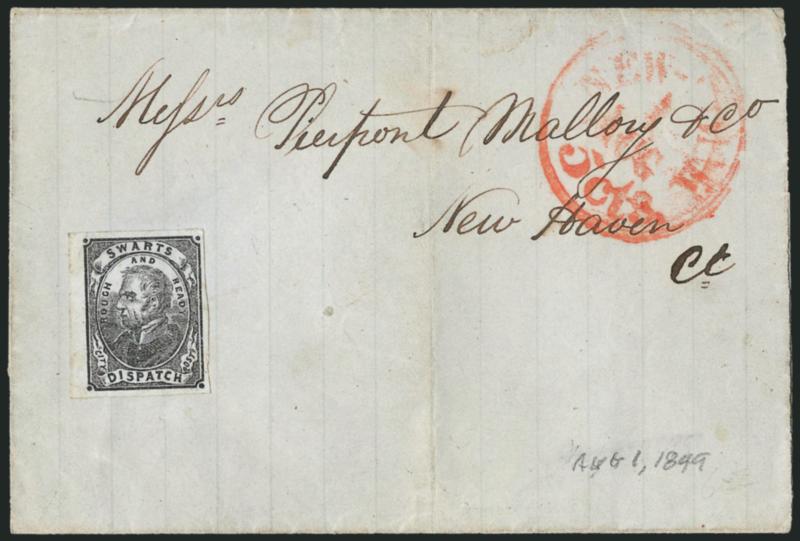 Messrs Pierpont Mallory & Co
New Haven
Ct
SWARTS
ROUGH AND READY
CITY POST
DISPATCH
NEW
5 Cts
Aug 1, 1849